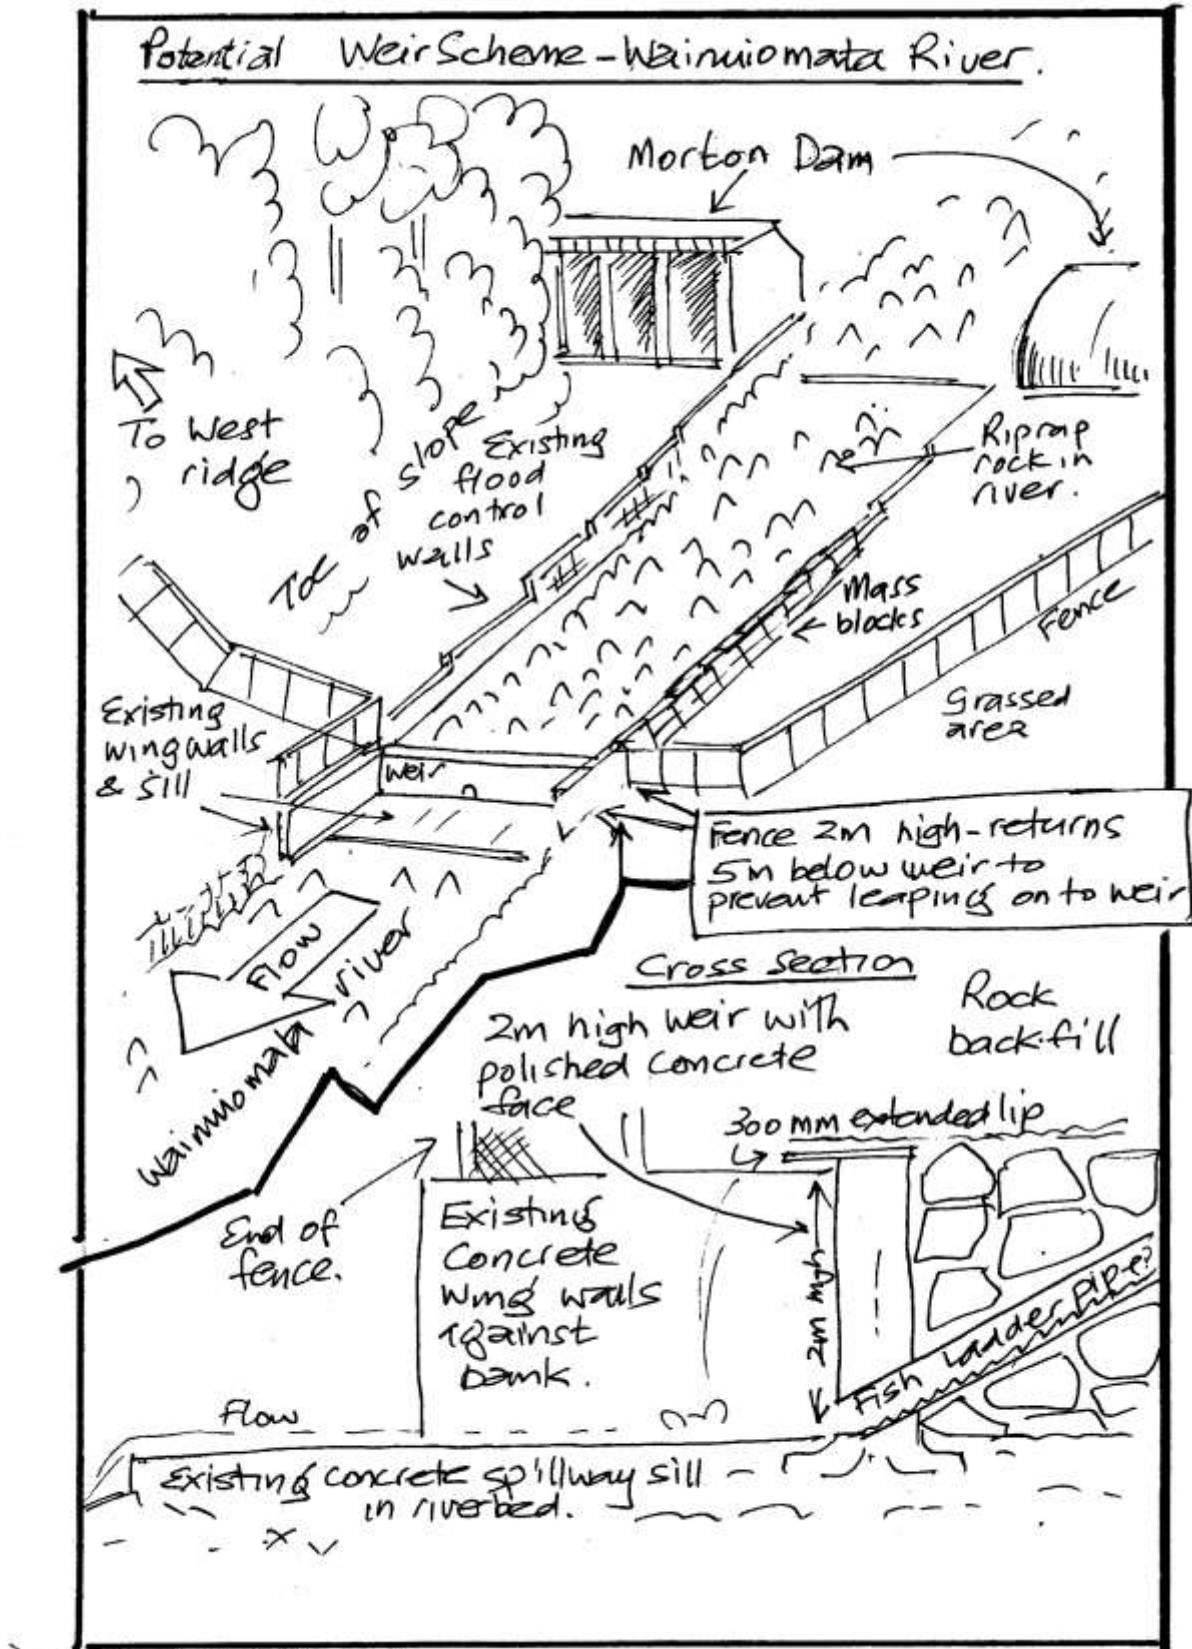 Potential Weir Scheme - Wainuiomata River.
Morton Dam
To West
ridge
Toe of slope
Existing
flood
control
walls
Riprap
rock in
river.
Mass
blocks
Fence
Grassed
area
Existing
wing walls
& sill
weir
Fence 2m high-returns
5m below weir to
prevent leaping on to weir
Flow
Wainuiomata river
Cross Section
2m high weir with
polished concrete
face
Rock
backfill
300mm extended lip
End of
fence.
Existing
Concrete
Wing walls
against
bank.
2m high
Fish Ladder pipe?
Flow
Existing concrete spillway sill
in riverbed.